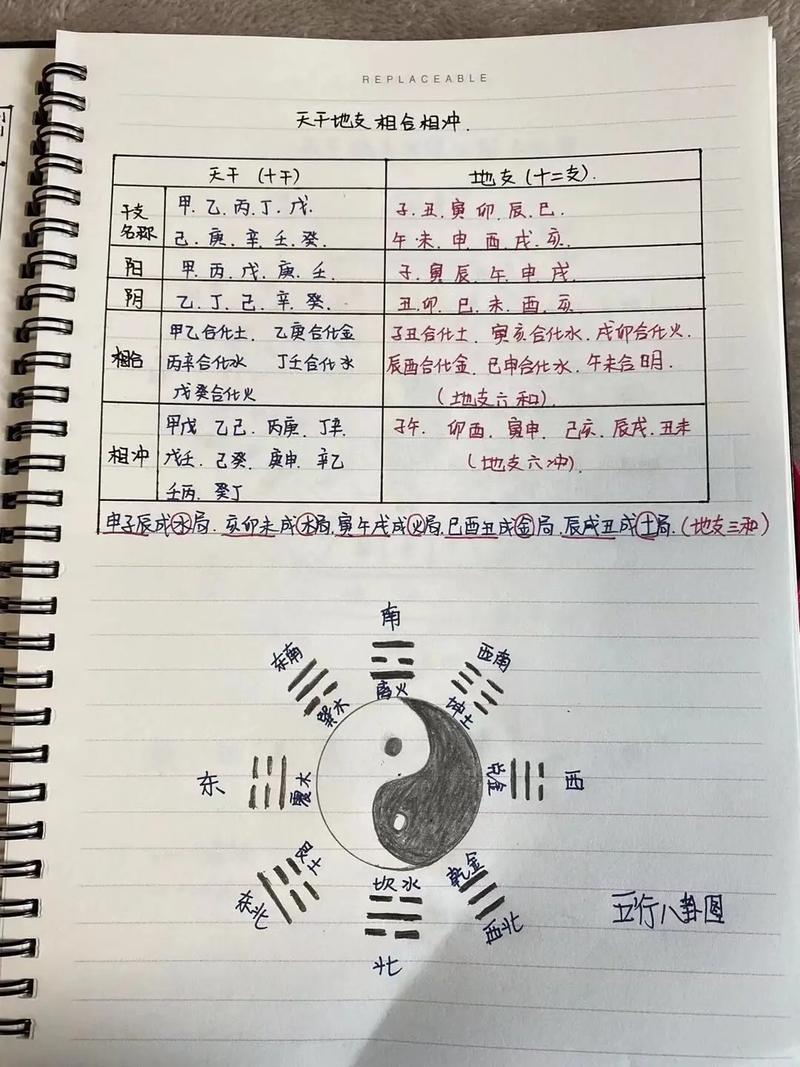 REPLACEABLE
天干地支相合相冲.
天干（十干） 地支（十二支）.
干支名称 甲.乙.丙.丁.戊. 子.丑.寅.卯.辰.巳.
己.庚.辛.壬.癸. 午.未.申.酉.戌.亥.
阳 甲.丙.戊.庚.壬. 子.寅.辰.午.申.戌.
阴 乙.丁.己.辛.癸. 丑.卯.巳.未.酉.亥.
相合 甲乙合化土. 乙庚合化金 子丑合化土. 寅亥合化水.戌卯合化火.
丙辛合化水 丁壬合化水 辰酉合化金.巳申合化水.午未合明.
戊癸合化火 （地支六和）.
相冲 甲戊 乙己.丙庚.丁辛. 子午. 卯酉.寅申. 己亥.辰戌.丑未
戊壬.己癸.庚申.辛乙 （地支六冲）.
壬丙.癸丁
申子辰成水局. 亥卯未成木局.寅午戌成火局.巳酉丑成金局.辰戌丑成土局.（地支三和）
南
东南
西南
离火
巽木
坤土
东
震木
兑金
西
坎水
乾金
东北
西北
北
五行八卦图